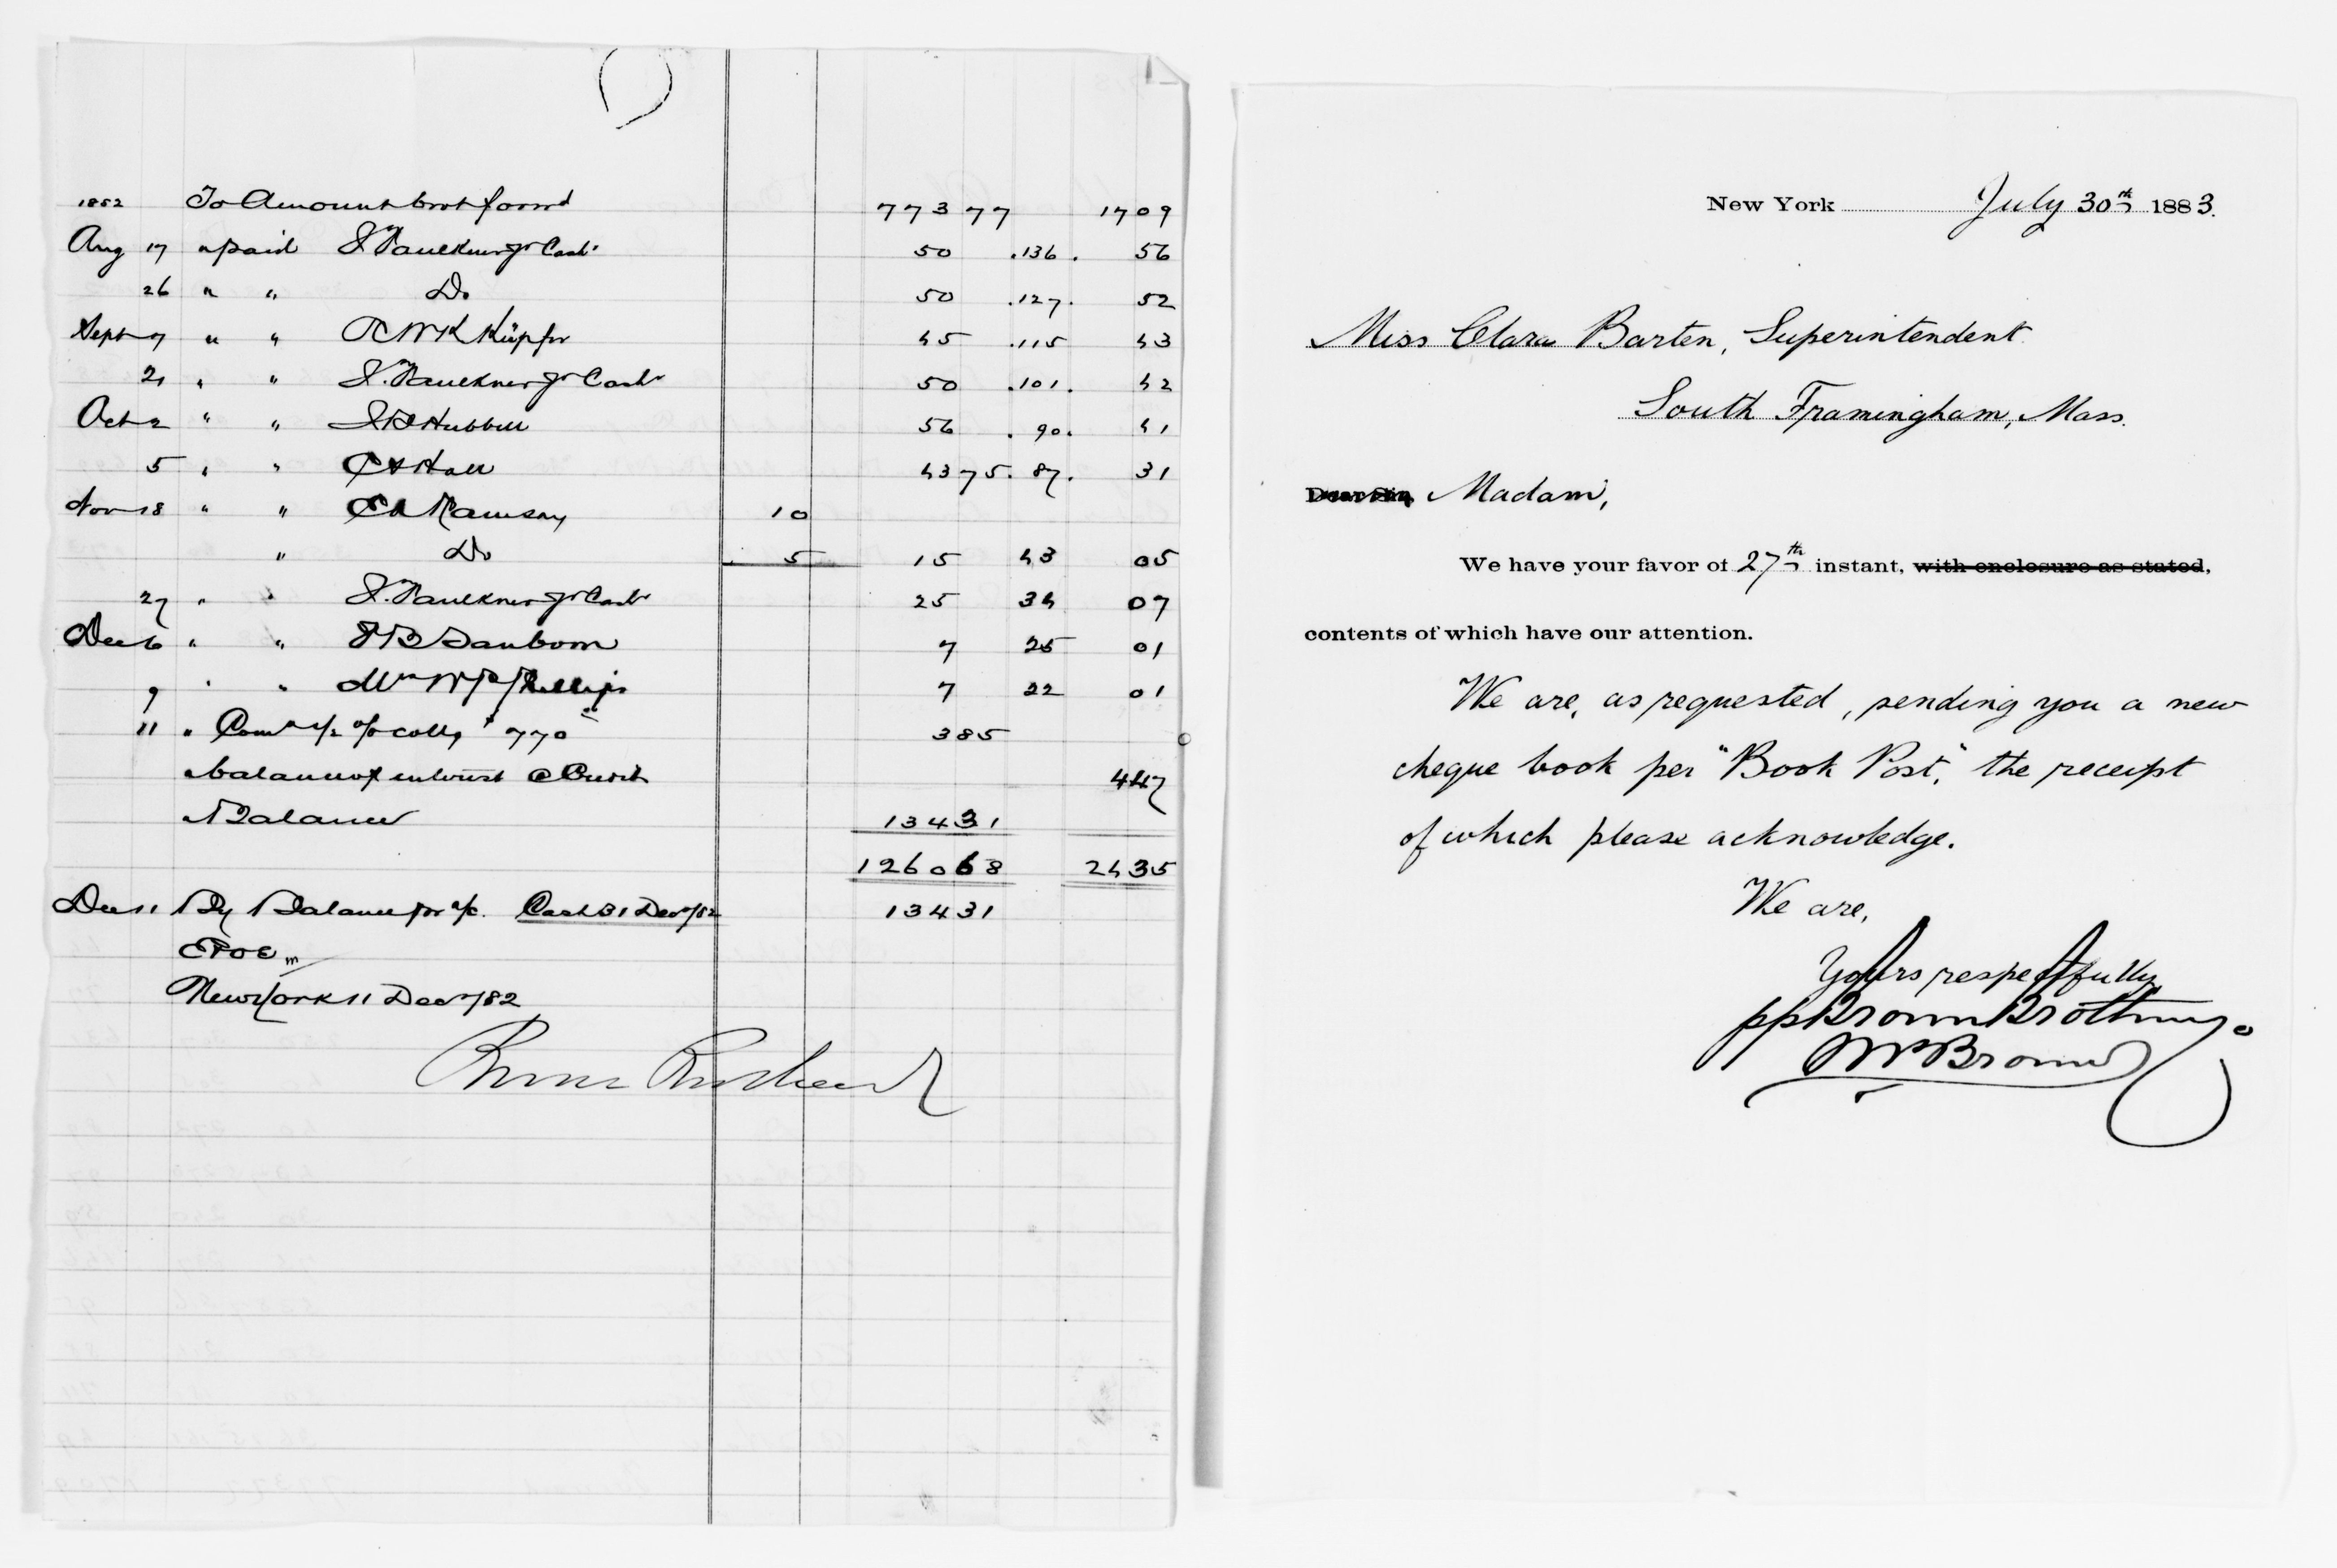 1882 To Amount brot forwd 773 77 17 09
Aug 17 " paid J. Faulkner Jr Cash 50 .136. 56
26 " " Do 50 .127. 52
Sept 7 " " Küpfer 45 .115 43
21 " " J. Faulkner Jr Cash 50 .101. 42
Oct 2 " " Hubbell 56 . 90. 41
5 " " Hall 43 75. 87. 31
Nov 18 " " Ramsay 10
" Do 5 15 43 05
27 " " J. Faulkner Jr Cash 25 34 07
Dec 6 " " Sanborn 7 25 01
9 " " Wm Phillips 7 22 01
11 " Comn ½ % colls $ 770 3 85
balance of interest Credit 4 47
Balance 134 31
1260 68 24 35
Dec 11 By Balance pr a/c. Cash 31 Dec /82 134 31
E & O E
New York 11 Dec /82
New York July 30th 1883.
Miss Clara Barten, Superintendent
South Framingham, Mass.
Dear Sir, Madam,
We have your favor of 27th instant, with enclosure as stated,
contents of which have our attention.
We are, as requested, sending you a new
cheque book per "Book Post," the receipt
of which please acknowledge.
We are,
Yours respectfully
pp Brown Brothers Co